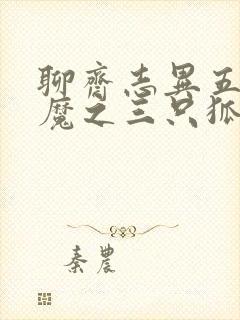 聊齋志異五
魔之三只狐
秦農